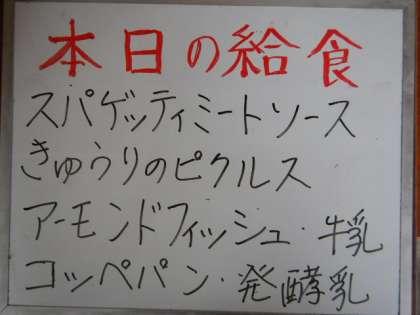 本日の給食
スパゲッティミートソース
きゅうりのピクルス
アーモンドフィッシュ・牛乳
コッペパン・発酵乳